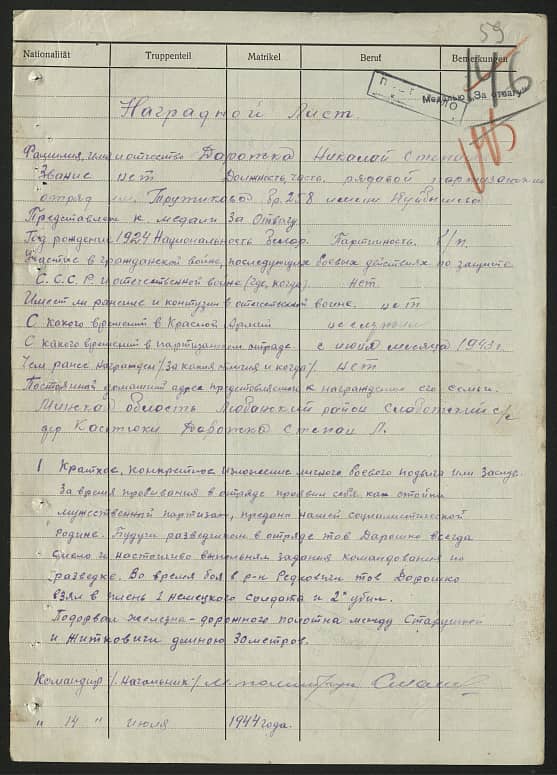 59
Nationalität Truppenteil Matrikel Beruf Bemerkungen
146
Медалью „За отвагу"
Наградной Лист
Фамилия, имя и отчество Дарошка Николай
Звание нет Должность, часть. рядовой
отряд им. бр. 258 имени Куйбышева
Представлен к медали За Отвагу.
Год рождения 1924 Национальность Белор. Партийность. б/п.
Участие в гражданской войне, последующих боевых действиях по защите
С.С.С.Р. и отечественной войне (где, когда). нет
Имеет ли ранение и контузии в отечественной войне. нет
С какого времений в Красной Армий не служил
С какого времений в партизанском отраде с июля месяца 1943 г.
Чем ранее награжден /за какия отличия и когда/ нет
Постоянной домашний адрес представляемого к награждению его семьи.
Минская область Любанский район Слободский с/с
дер Костюки Дарожка Степан Л.
1 Краткое, конкретное изложение личного боевого подвига или заслуг.
За время пробивания в отряде проявил себя как стойкий
мужественный партизан, предана нашей социалистической
родине. Будучи разведчиком в отряде тов Дарошко всегда
смело и настойчиво выполням задания командования по
разведке. Во время боя в р-н Редковичи тов Дарошко
взял в плень 1 немецкого солдата и 2х убил.
Подорвал железно-дорожного полотна между Старушки
и Житковичи длиною 30 метров.
Командир /Начальник/
„ 14 " июля 1944 года.